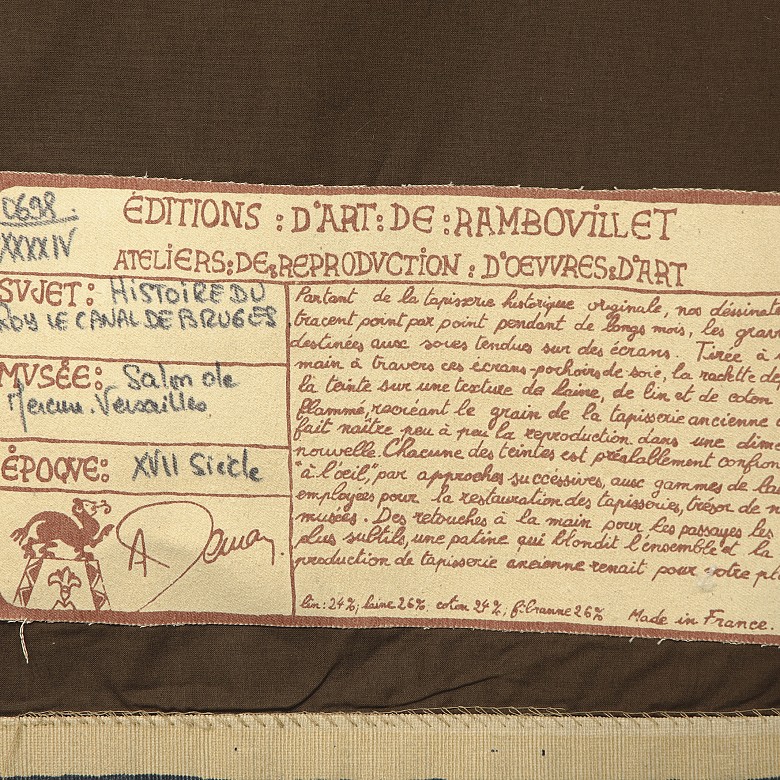 0698
XXXXIV
ÉDITIONS : D'ART : DE : RAMBOVILLET
ATELIERS : DE : REPRODVCTION : D'OEVVRES : D'ART
SVJET : HISTOIRE DU
ROY LE CANAL DE BRUGES
MVSÉE : Salon de
Mercure. Versailles
ÉPOQVE : XVII Siècle
A Deman.
Partant de la tapisserie historique originale, nos dessinat
tracent point par point pendant de longs mois, les grav
destinées aux soies tendues sur des écrans. Tirée à
main à travers ces écrans-pochoirs de soie, la raclette de
la teinte sur une texture de laine, de lin et de coton
flammé, recréant le grain de la tapisserie ancienne
fait naître peu à peu la reproduction dans une dime
nouvelle. Chacune des teintes est préalablement confron
"à l'œil", par approches successives, aux gammes de lai
employées pour la restauration des tapisseries, trésor de n
musées. Des retouches à la main pour les passages les
plus subtils, une patine qui blondit l'ensemble et la
production de tapisserie ancienne renait pour votre pl
lin: 24%; laine 26% coton 24%, fibranne 26% Made in France.